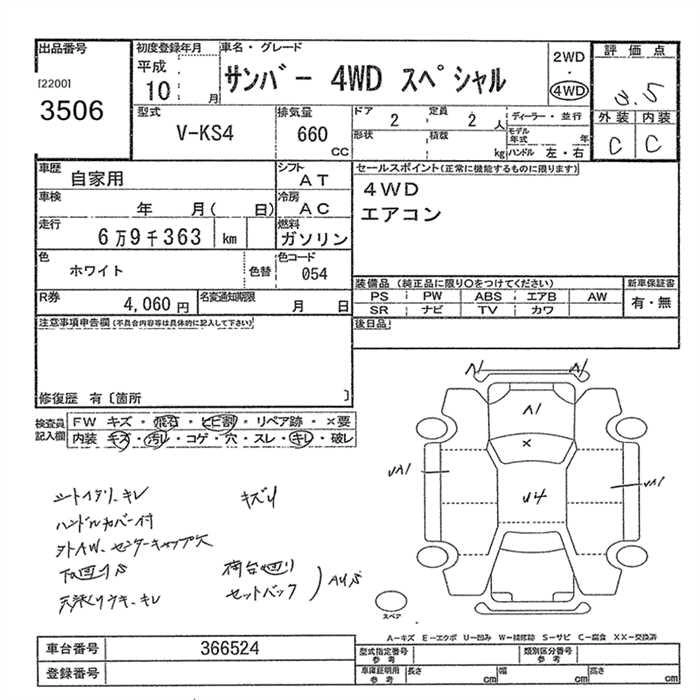 出品番号 初度登録年月 車名・グレード 評価点
[2200] 平成 10 月 サンバー 4WD スペシャル 2WD ・ 4WD 3.5
3506
型式 V-KS4 排気量 660 CC ドア 2 定員 2 人 ディーラー・並行 外装 内装
形状 積載 kg モデル年式 年 ハンドル 左・右 C C
車歴 自家用 シフト AT セールスポイント(正常に機能するものに限ります)
車検 年 月( 日) 冷房 AC 4WD
走行 6万9千363 km 燃料 ガソリン エアコン
色 ホワイト 色替 色コード 054
装備品 (純正品に限り○をつけてください) 新車保証書
R券 4,060円 名変通知期限 月 日 PS PW ABS エアB AW 有・無
SR ナビ TV カワ
注意事項申告欄(不具合内容等は具体的に記入して下さい) 後日品
修復歴 有〔箇所 〕
検査員記入欄 FW キズ・飛石・ヒビ割・リペア跡・×要
内装 キズ・汚レ・コゲ・穴・スレ・キレ・破レ
A1 A1
A1
×
UA1 U4 UA1
キズリ
ハンドルカバー付
外AW、センターキャップ欠
下回りS 荷台廻り
セットバック AUS
スペア
A-キズ E-エクボ U-凹み W-補修跡 S-サビ C-腐食 XX-交換済
車台番号 366524 型式指定番号 参考 類別区分番号 参考
登録番号 車庫証明用 参考 長さ cm 幅 cm 高さ cm